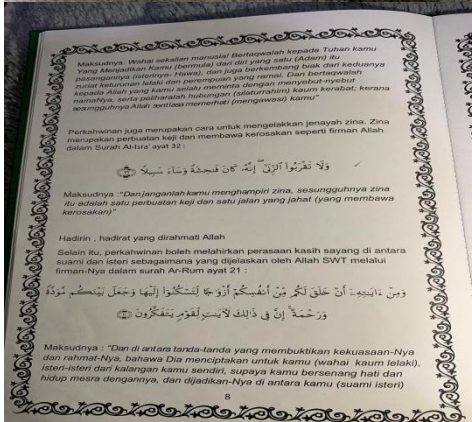 Maksudnya: Wahai sekalian manusia! Bertaqwalah kepada Tuhan kamu
Yang Menjadikan Kamu (bermula) dari diri yang satu (Adam) itu
pasangannya (isterinya- Hawa), dan juga berkembang biak dari keduanya
zuriat keturunan lelaki dan perempuan yang ramai. Dan bertaqwalah
kepada Allah yang kamu selalu meminta dengan menyebut-nyebut
namaNya, serta peliharalah hubungan (silaturrahim) kaum kerabat; kerana
sesungguhnya Allah sentiasa memerhati (mengawasi) kamu"
Perkahwinan juga merupakan cara untuk mengelakkan jenayah zina. Zina
merupakan perbuatan keji dan membawa kerosakan seperti firman Allah
dalam Surah Al-Isra' ayat 32 :
وَلَا تَقْرَبُوا الزِّنَىٰ ۖ إِنَّهُ كَانَ فَاحِشَةً وَسَاءَ سَبِيلًا
Maksudnya :"Dan janganlah kamu menghampiri zina, sesungguhnya zina
itu adalah satu perbuatan keji dan satu jalan yang jahat (yang membawa
kerosakan)"
Hadirin , hadirat yang dirahmati Allah
Selain itu, perkahwinan boleh melahirkan perasaan kasih sayang di antara
suami dan isteri sebagaimana yang dijelaskan oleh Allah SWT melalui
firman-Nya dalam surah Ar-Rum ayat 21 :
وَمِنْ ءَايَـٰتِهِۦٓ أَنْ خَلَقَ لَكُم مِّنْ أَنفُسِكُمْ أَزْوَٰجًا لِّتَسْكُنُوٓا۟ إِلَيْهَا وَجَعَلَ بَيْنَكُم مَّوَدَّةً
وَرَحْمَةً ۚ إِنَّ فِى ذَٰلِكَ لَـَٔايَـٰتٍ لِّقَوْمٍ يَتَفَكَّرُونَ
Maksudnya : "Dan di antara tanda-tanda yang membuktikan kekuasaan-Nya
dan rahmat-Nya, bahawa Dia menciptakan untuk kamu (wahai kaum lelaki),
isteri-isteri dari kalangan kamu sendiri, supaya kamu bersenang hati dan
hidup mesra dengannya, dan dijadikan-Nya di antara kamu (suami isteri)
8